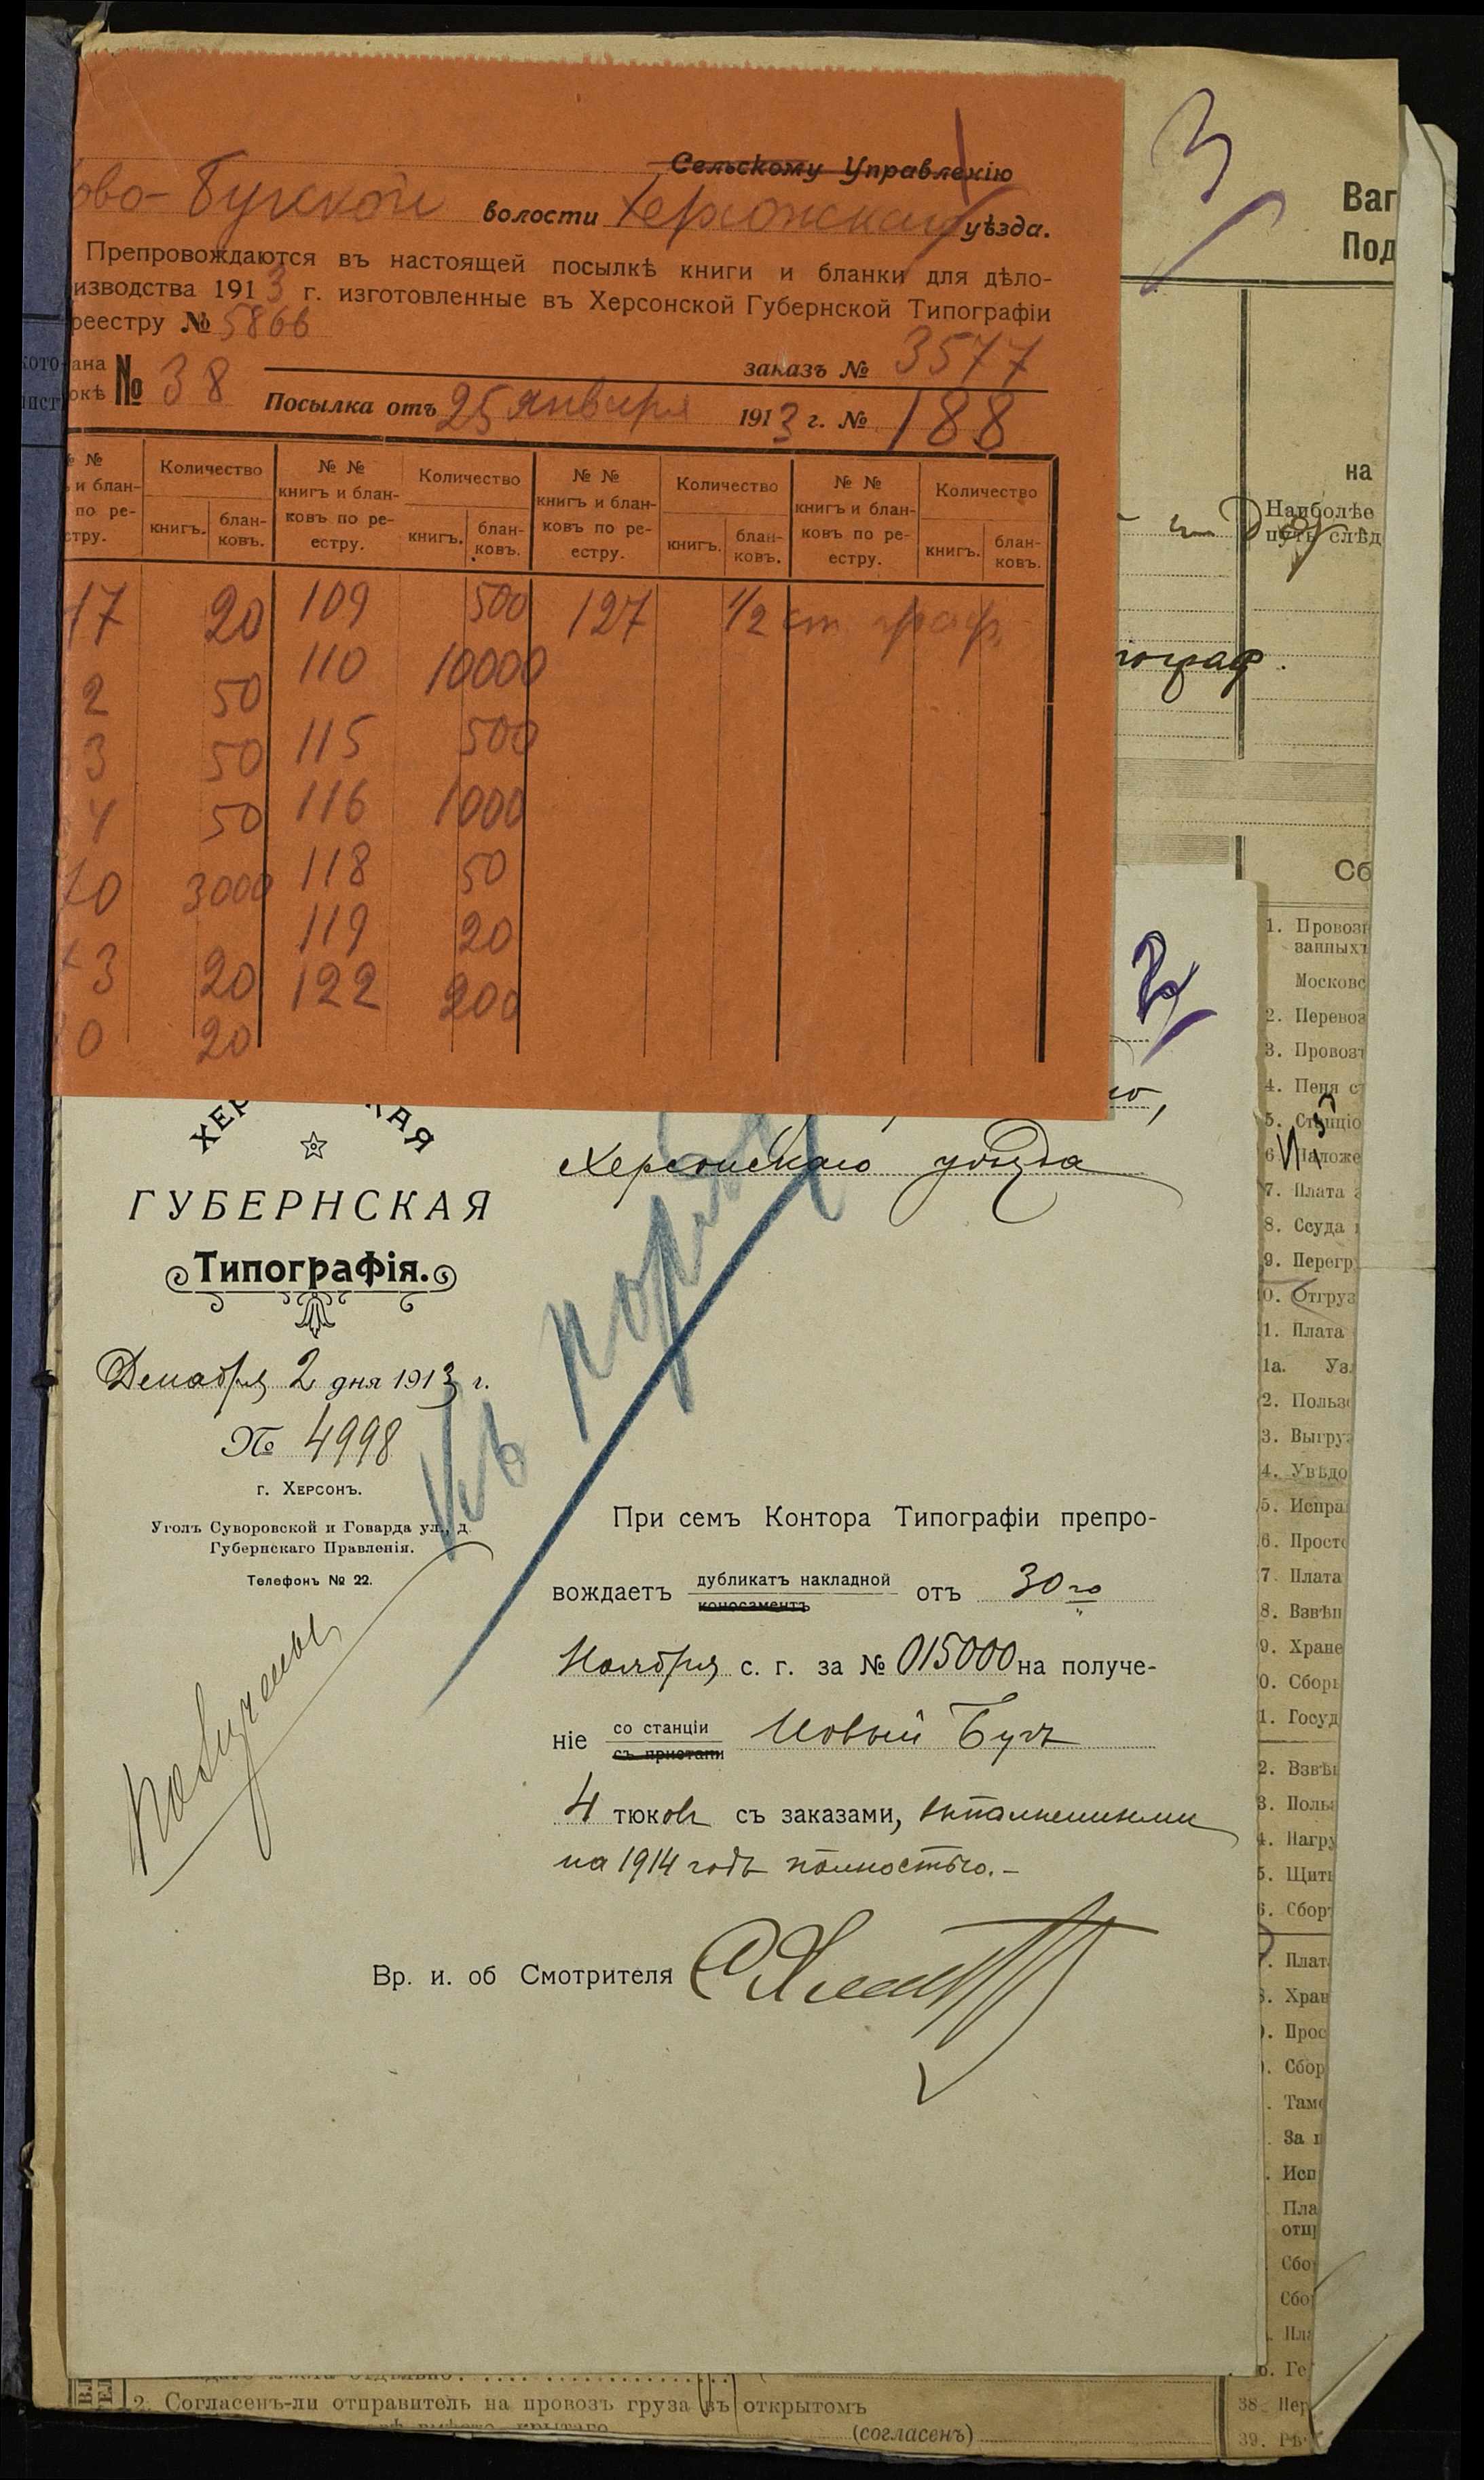 3
Ваг
Под
Сельскому Управленію
ово-Бугской волости Херсонскаго уѣзда.
Препровождаются въ настоящей посылкѣ книги и бланки для дѣло-
изводства 1913 г. изготовленные въ Херсонской Губернской Типографіи
реестру № 5866
заказъ № 3577
ана
окѣ № 38
Посылка отъ 25 января 1913 г. № 188
№ № Количество № № Количество № № Количество № № Количество
и блан- книгъ и блан- книгъ и блан- книгъ и блан-
по ре- книгъ. блан- ковъ по ре- книгъ. блан- ковъ по ре- книгъ. блан- ковъ по ре- книгъ. блан-
стру. ковъ. естру. ковъ. естру. ковъ. естру. ковъ.
17 20 109 500 127 1/2 ст граф.
2 50 110 10000
3 50 115 500
4 50 116 1000
0 3000 118 50
119 20
3 20 122 200
0 20
на
Наиболѣе
путь слѣд
ограф.
Сб
ХЕР КАЯ
ГУБЕРНСКАЯ
Типографія.
Декабря 2 дня 1913 г.
№ 4998
г. Херсонъ.
Уголъ Суворовской и Говарда ул., д.
Губернскаго Правленія.
Телефонъ № 22.
Херсонскаго уѣзда
При семъ Контора Типографіи препро-
вождаетъ дубликатъ накладной коносаментъ отъ 30го
Ноября с. г. за № 015000 на получе-
ніе со станціи съ пристани Новый Бугъ
4 тюковъ съ заказами, выполненными
на 1914 годъ полностью.-
Вр. и. об Смотрителя
Къ
1. Провозн
занныхъ
Московс
2. Перевоз
3. Провозъ
4. Пеня с
5. Станціо
6 Наложе
7. Плата з
8. Ссуда
9. Перегр
0. Отгруз
1. Плата
1а. Уз
2. Польз
3. Выгруз
4. Увѣдо
5. Испра
6. Просто
7. Плата
8. Взвѣш
9. Хране
0. Сборъ
1. Госуд
2. Взвѣш
3. Польз
4. Нагру
5. Щиты
6. Сбор
Плат
Хран
Прос
Сбор
Там
За
Исп
Пла
отп
Сбо
Сбо
Пла
Ге
38 Пер
39.
2. Согласенъ-ли отправитель на провозъ груза въ открытомъ
(согласенъ)